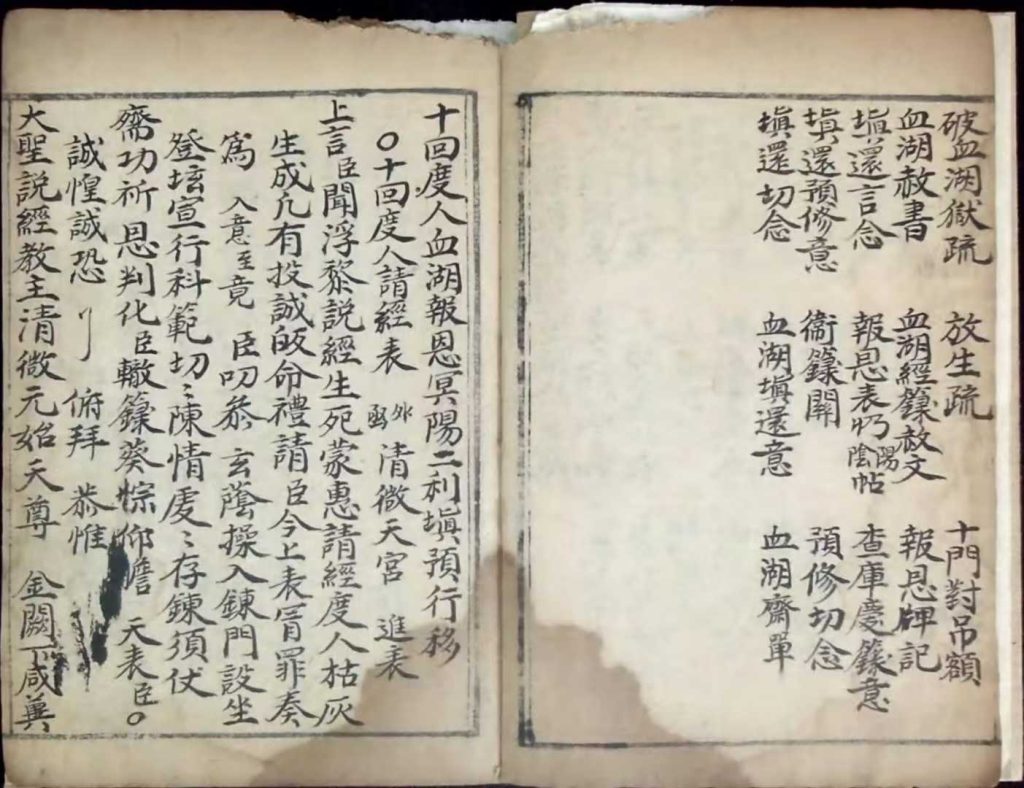 破血湖獄疏 放生疏 十門對吊額
血湖赦書 血湖經籙赦文 報恩牌記
填還言念 報恩表 陽陰帖 查庫慶籙意
填還預修意 衞籙關 預修切念
填還切念 血湖填還意 血湖齋單
十回度人血湖報恩冥陽二利填預行移
○十回度人請經表 外 清微天宮 進表
上言臣聞浮黎說經生死蒙惠請經度人枯灰
生成凢有投誠皈命禮請臣今上表冒罪奏
爲 入意至竟 臣叨叅玄蔭操入鍊門設坐
登壇宣行科範切〻陳情處〻存鍊須仗
齋功祈恩判化臣轍籙葵悰仰瞻 天表臣○
誠惶誠恐 俯拜 恭惟
大聖說經教主清微元始天尊 金闕下咸冀